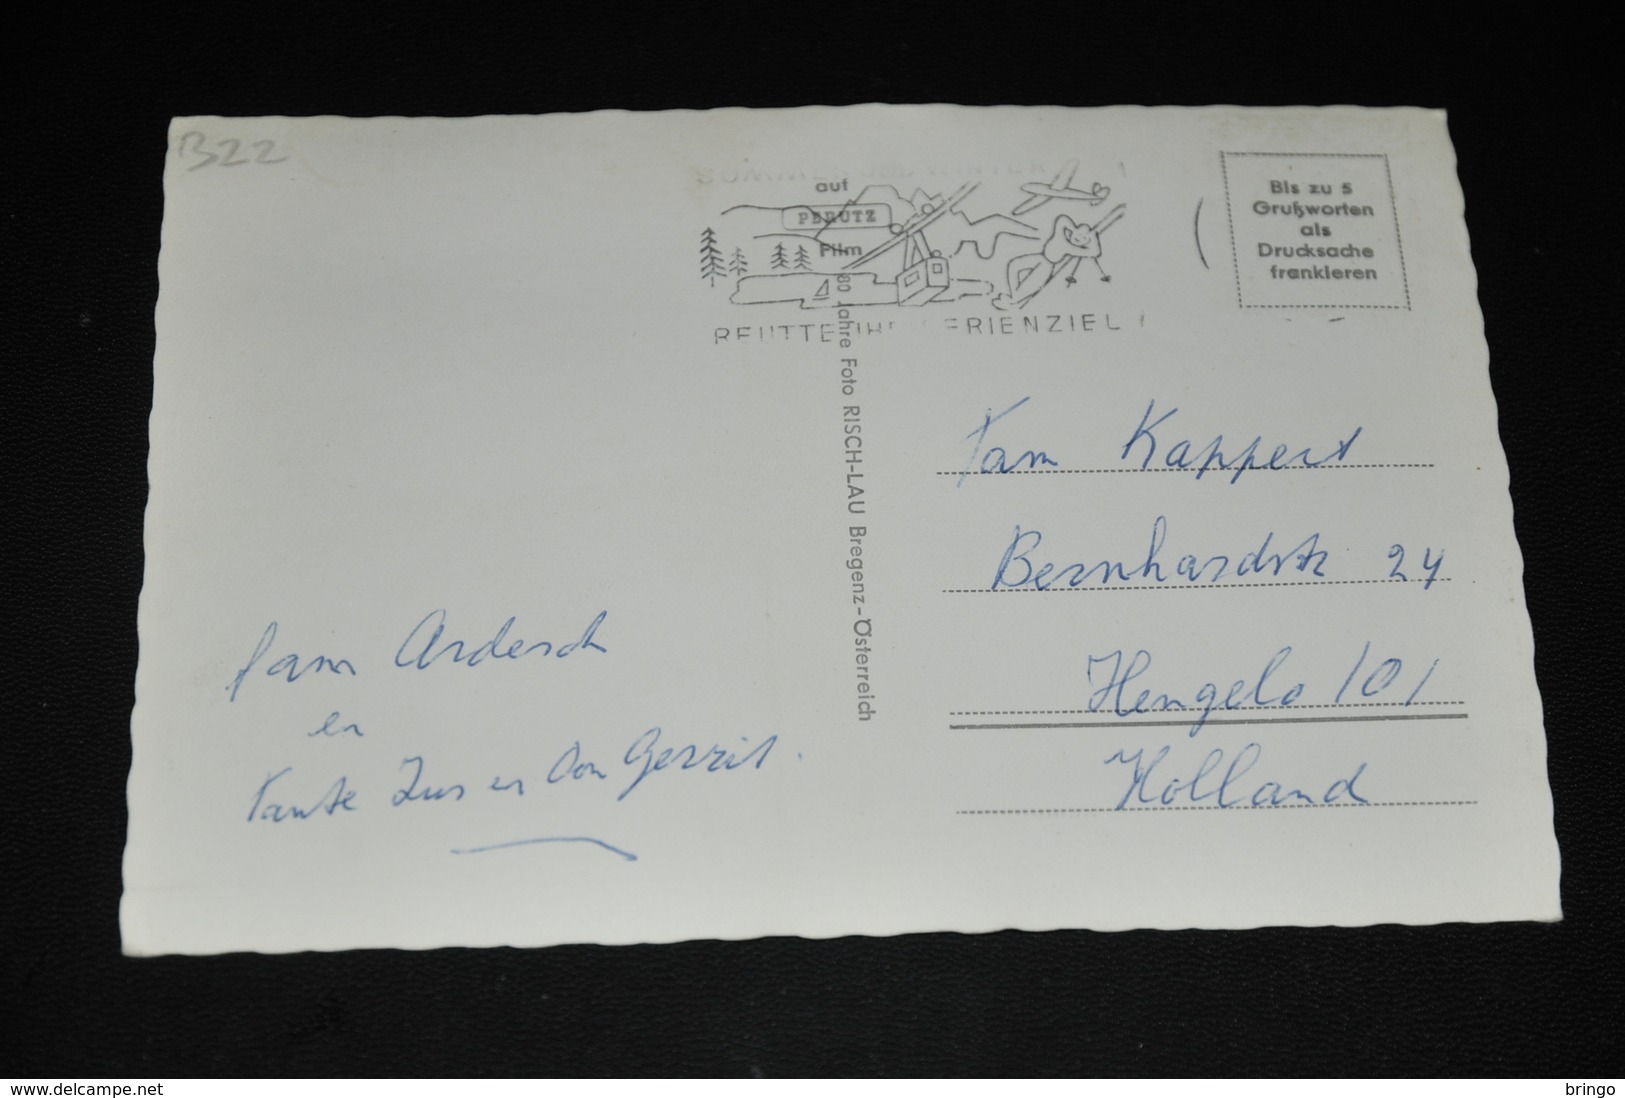 B22
SOMMER UND WINTER
auf
PERUTZ
Film
REUTTE IHR FERIENZIEL !
Bis zu 5
Grußworten
als
Drucksache
frankieren
80 Jahre Foto RISCH-LAU Bregenz-Österreich
Fam Kappert
Bernhardstr 24
Hengelo 101
Holland
fam Ardesch
en
Tante Zus en Oom Gerrit.
www.delcampe.net
bringo